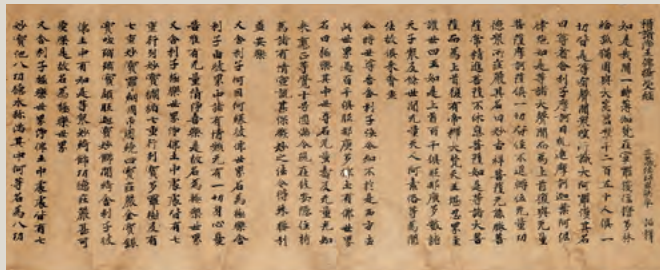 稱讚淨土佛攝受經
三藏法師玄奘奉 詔譯
如是我聞一時薄伽梵在室羅筏住誓多林
給孤獨園與大苾芻眾千二百五十人俱一
切皆是尊宿聲聞眾望所識大阿羅漢其名
曰尊者舍利子摩訶目犍連摩訶迦葉阿泥
律陀如是等諸大聲聞而為上首復與無量
菩薩摩訶薩俱一切皆住不退轉位無量功
德眾所莊嚴其名曰妙吉祥菩薩無能勝菩
薩常精進菩薩不休息菩薩如是等諸大菩
薩而為上首復有帝釋大梵天王堪忍界主
護世四王如是上首百千俱胝那庾多數諸
天子眾及餘世間無量天人阿素洛等為聞
法故俱來會坐
爾時世尊告舍利子汝今知不於是西方去
此世界過百千俱胝那庾多佛土有佛世界
名曰極樂其中世尊名無量壽及無量光如
來應正等覺十號圓滿今現在彼安隱住持
為諸有情宣說甚深微妙之法令得殊勝利
益安樂
又舍利子何因何緣彼佛世界名為極樂舍
利子由彼界中諸有情類無有一切身心憂
苦唯有無量清淨喜樂是故名為極樂世界
又舍利子極樂世界淨佛土中處處皆有七
重行列妙寶欄楯七重行列寶多羅樹及有
七重妙寶羅網周匝圍繞四寶莊嚴金寶銀
寶吠琉璃寶頗胝迦寶妙飾間綺舍利子彼
佛土中有如是等眾妙綺飾功德莊嚴甚可
愛樂是故名為極樂世界
又舍利子極樂世界淨佛土中處處皆有七
妙寶池八功德水彌滿其中何等名為八功